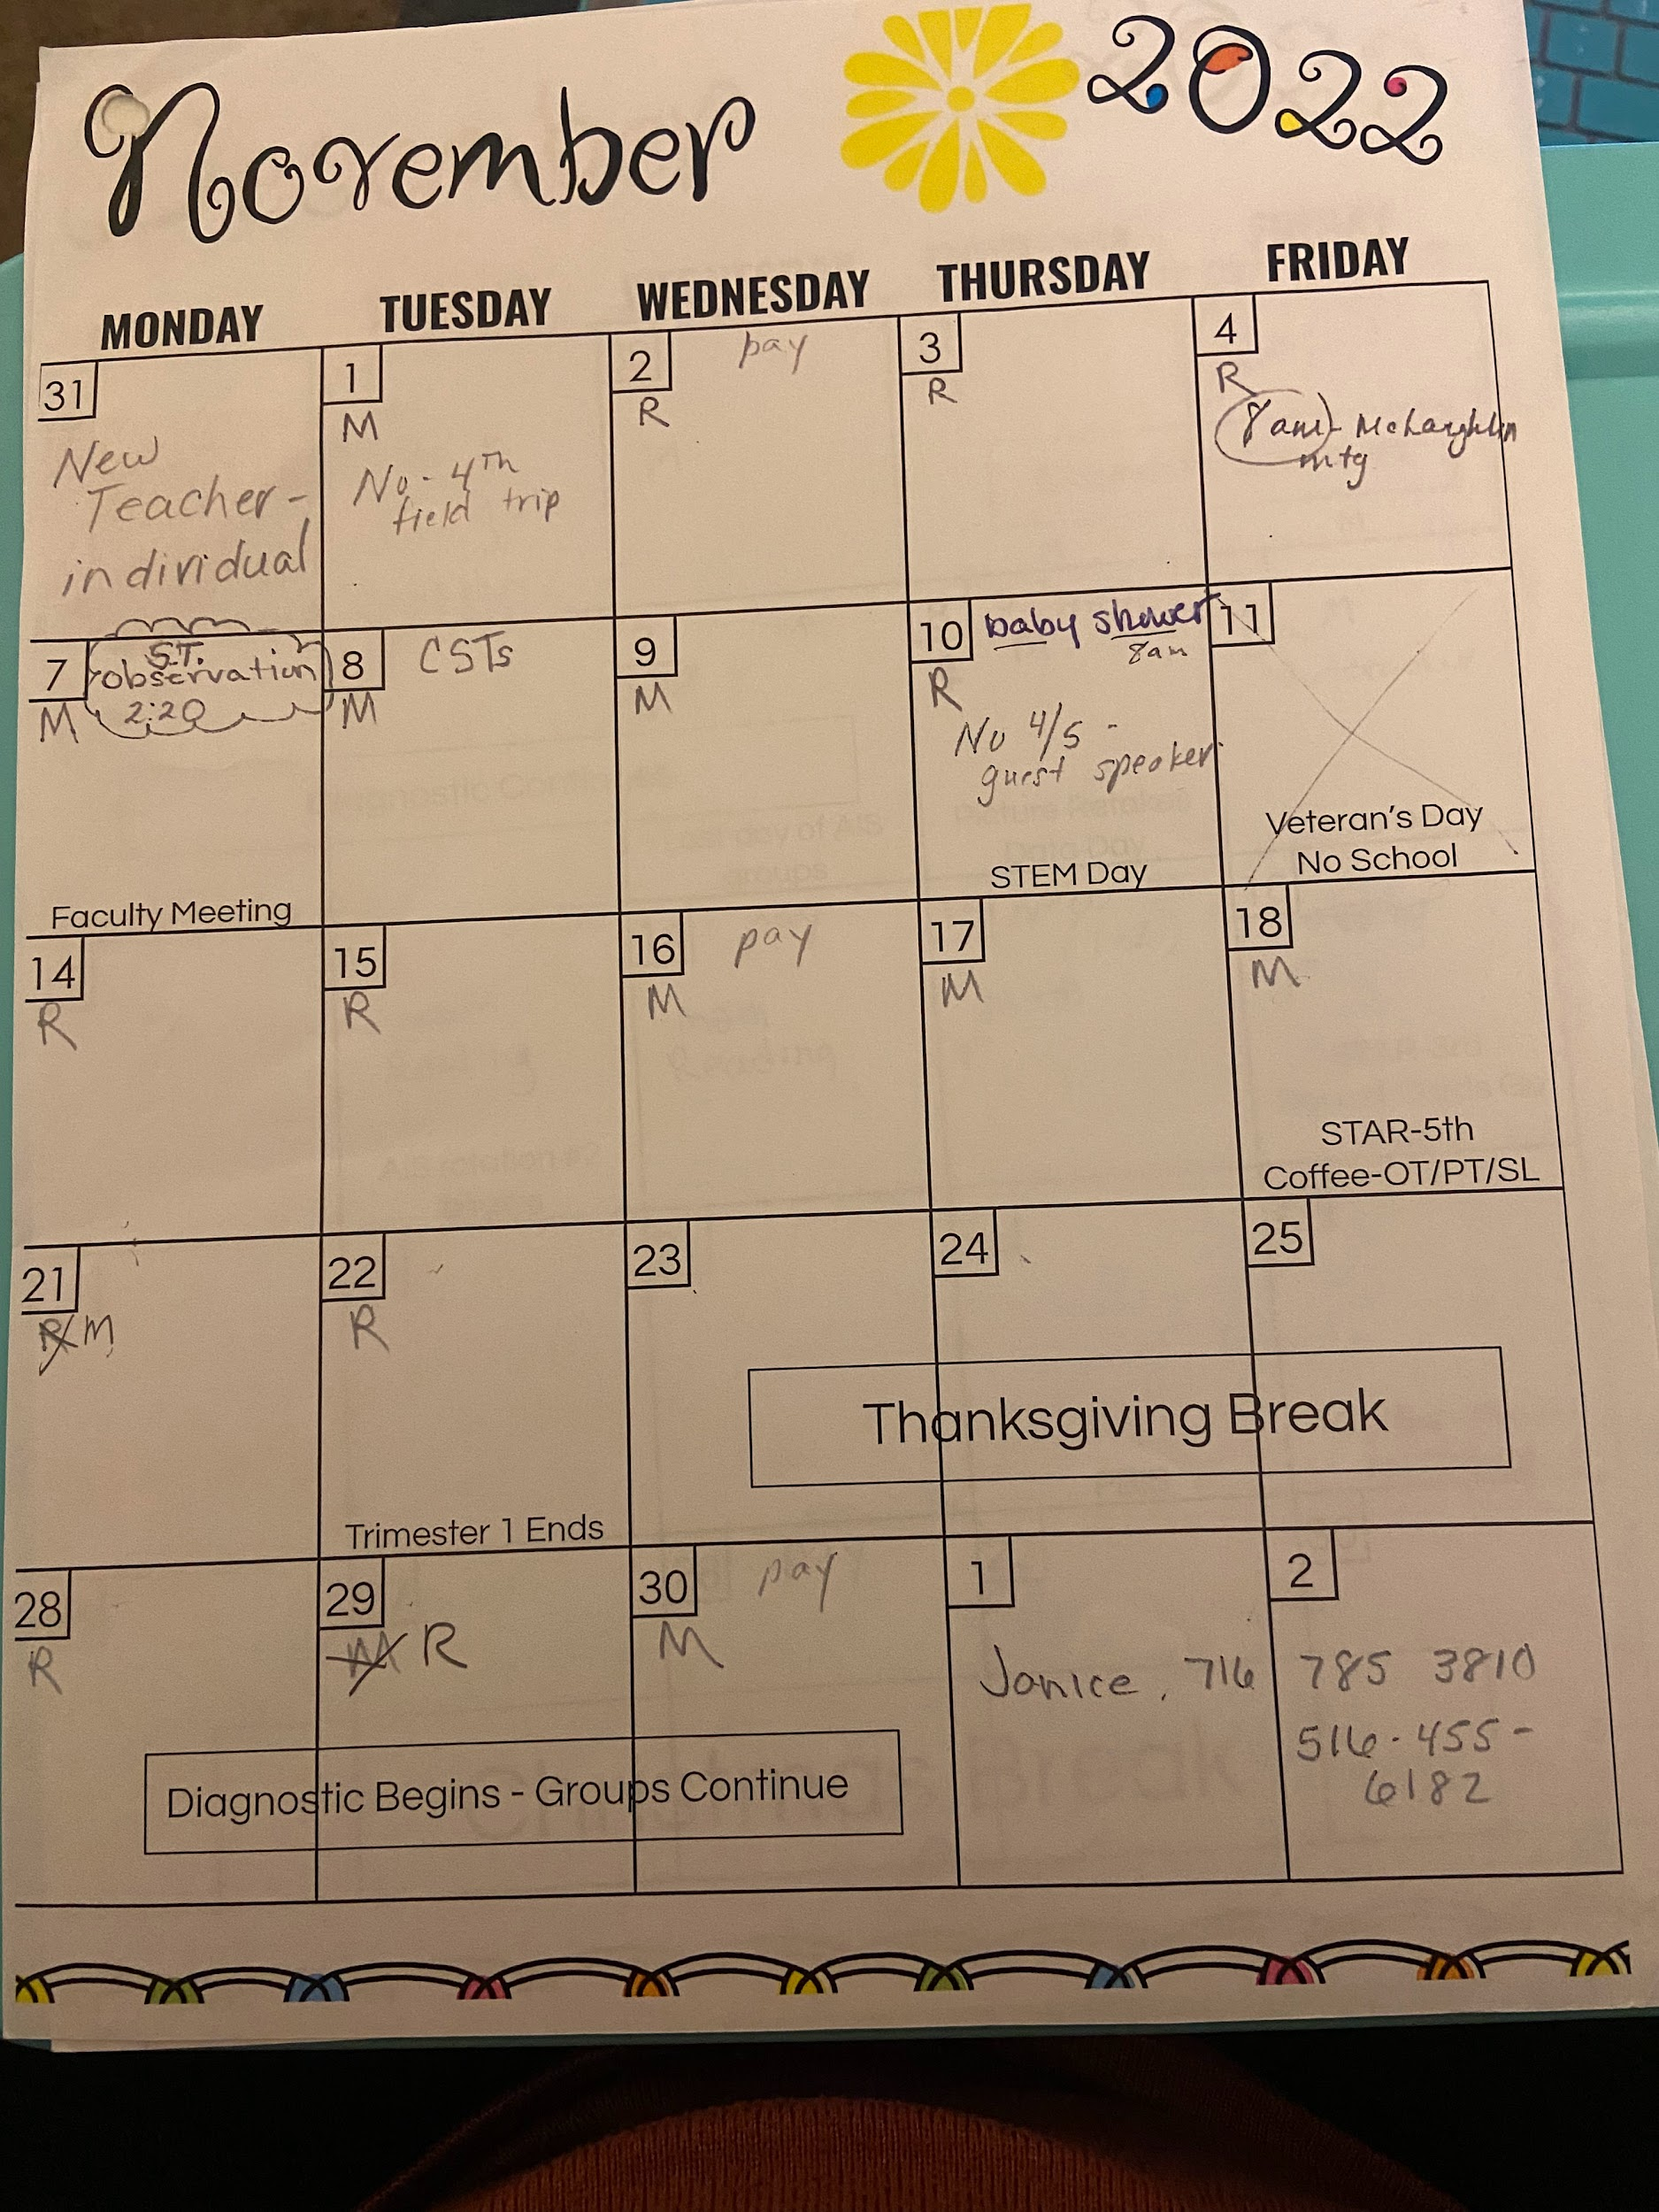 November 2022
MONDAY TUESDAY WEDNESDAY THURSDAY FRIDAY
31
New
Teacher-
individual
1
M
No - 4th
field trip
2 pay
R
3
R
4
R
8am - McLaughlin
mtg
7 S.T.
observation
M 2:20
Faculty Meeting
8 CSTs
M
9
M
10 baby shower
8am
R
No 4/5 -
guest speaker
STEM Day
11
Veteran's Day
No School
14
R
15
R
16 pay
M
17
M
18
M
STAR-5th
Coffee-OT/PT/SL
21
R M
22
R
Trimester 1 Ends
23
24
25
Thanksgiving Break
28
R
29
M R
30 pay
M
Diagnostic Begins - Groups Continue
1
2
Janice, 716 785 3810
516-455-
6182